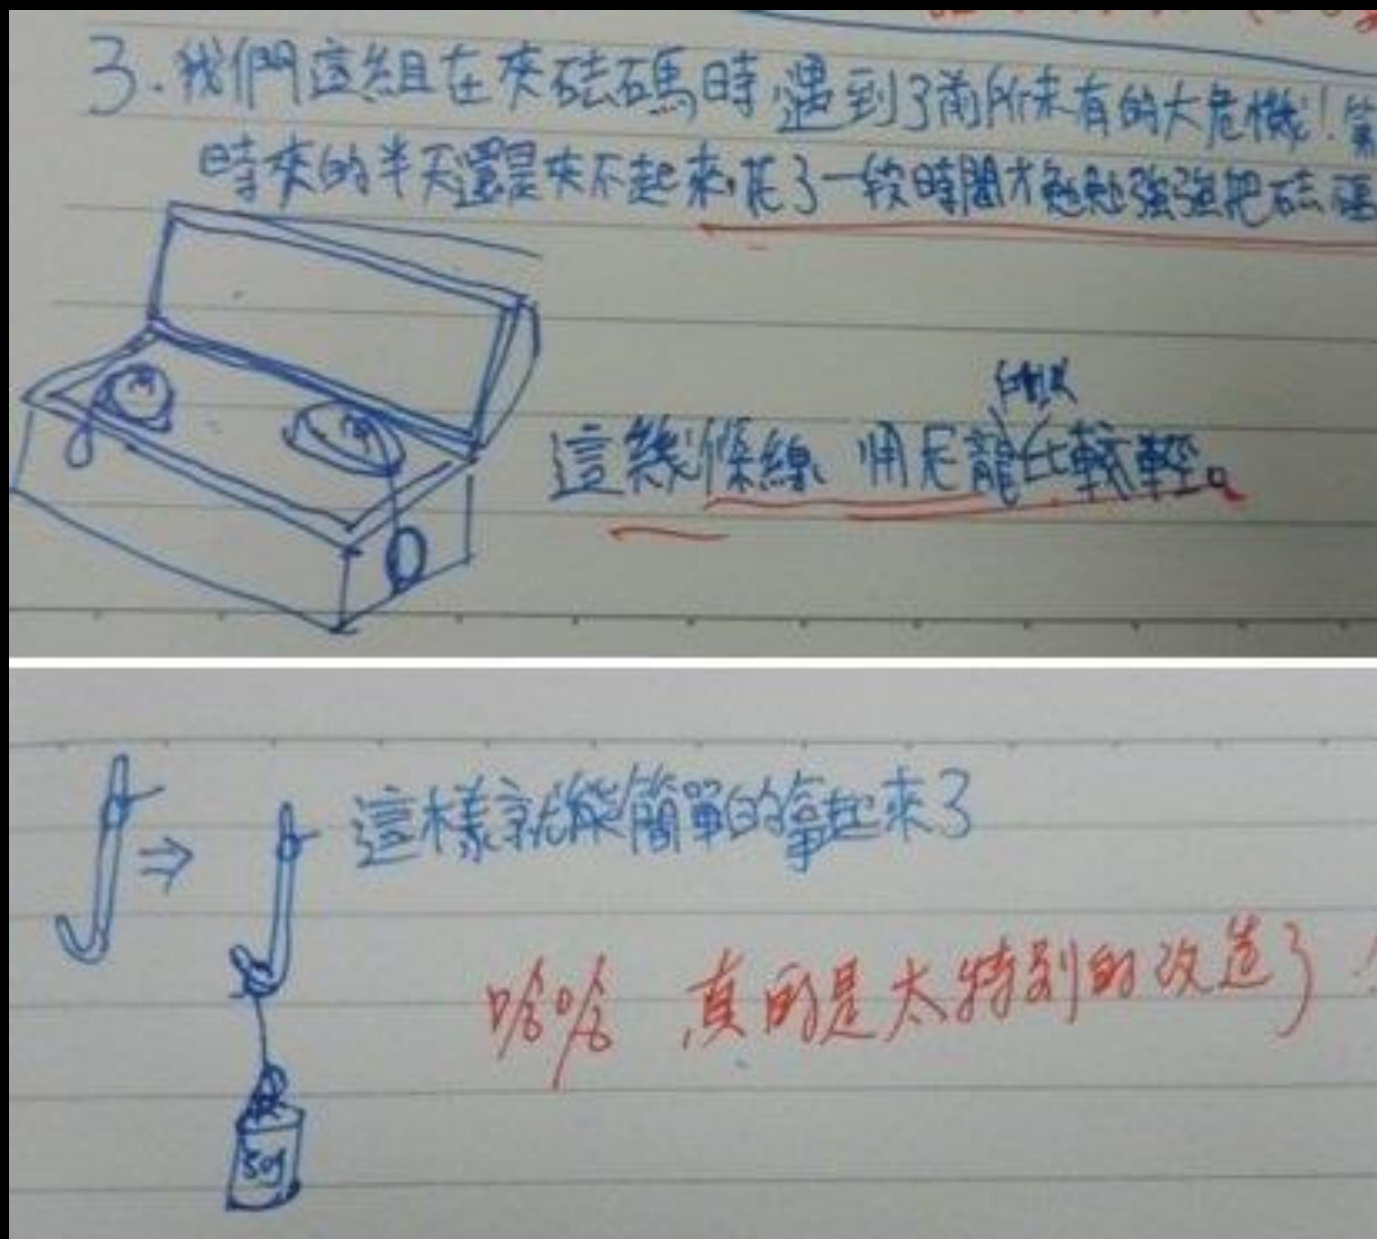 3.我們這組在夾砝碼時,遇到了前所未有的大危機!
時夾的半天還是夾不起來,花了一段時間才勉勉強強把砝碼
3
3
這幾條線 用尼龍比較輕。
這樣就能簡單的拿起來了
哈哈 真的是太特別的改造了!
50g